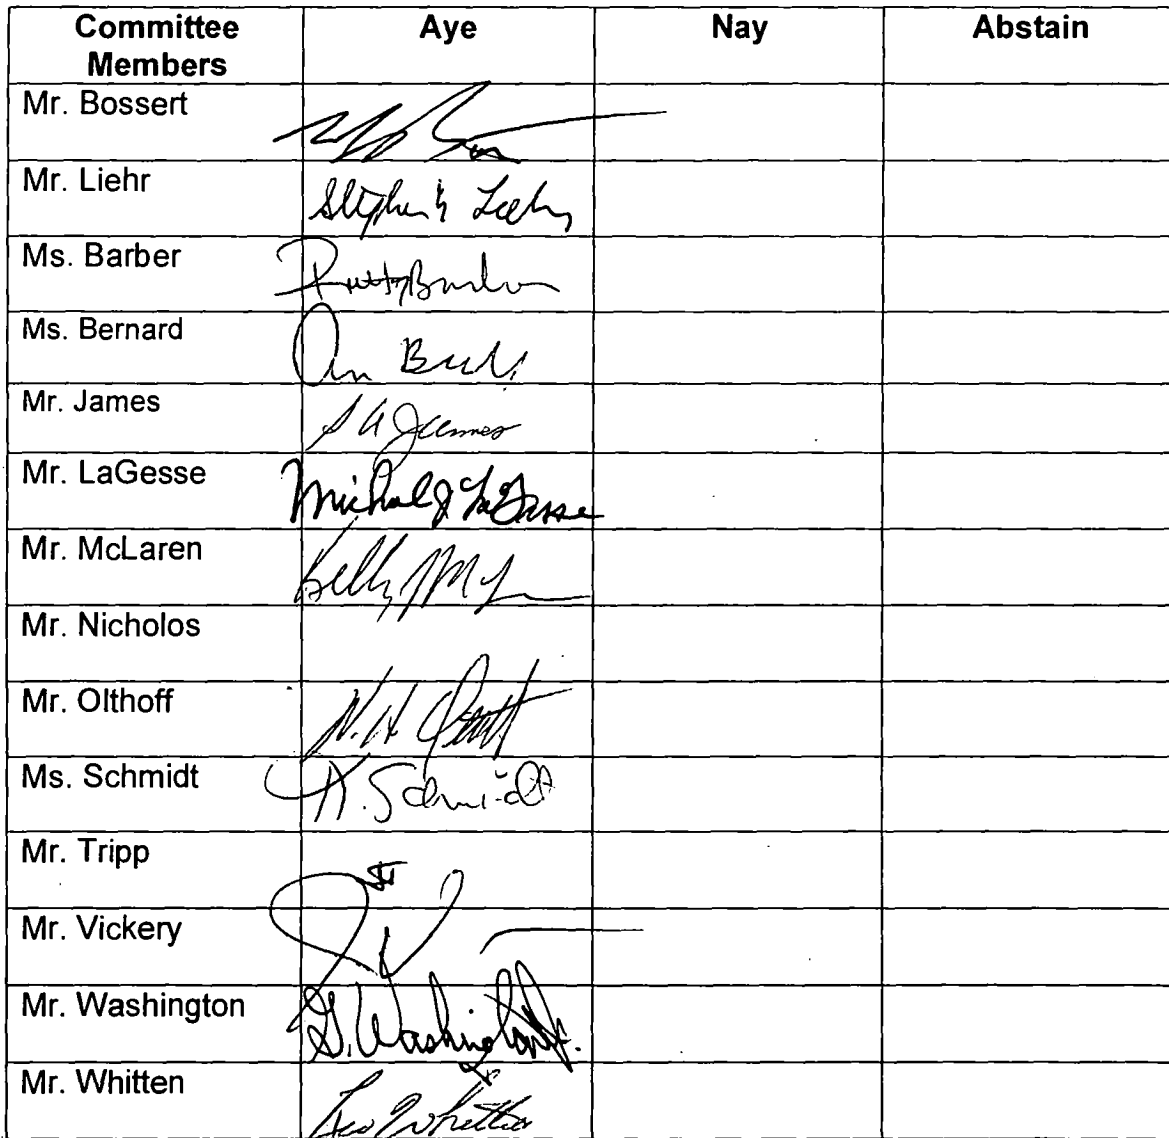 Committee Members Aye Nay Abstain
Mr. Bossert
Mr. Liehr Stephen Liehr
Ms. Barber
Ms. Bernard
Mr. James S A James
Mr. LaGesse Michael J LaGesse
Mr. McLaren Kelly
Mr. Nicholos
Mr. Olthoff
Ms. Schmidt K. Schmidt
Mr. Tripp
Mr. Vickery
Mr. Washington G. Washington Jr.
Mr. Whitten Leo Whitten